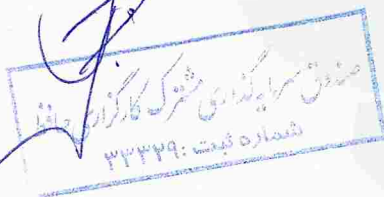 صندوق سرمایه گذاری مشترک کارگزاری حافظ
شماره ثبت: ۳۳۳۲۹